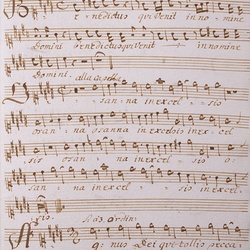 Benedictus qui venit in nomine
Domini benedictus qui venit in nomine
Domini. alla capella
O - san - na in excel - sis
osan - na osanna in excelsis in ex - cel
sis o - san - na in excel -
san - na in ex cel - sis in excel -
sis.
A - gnus Dei qui tollis pecca